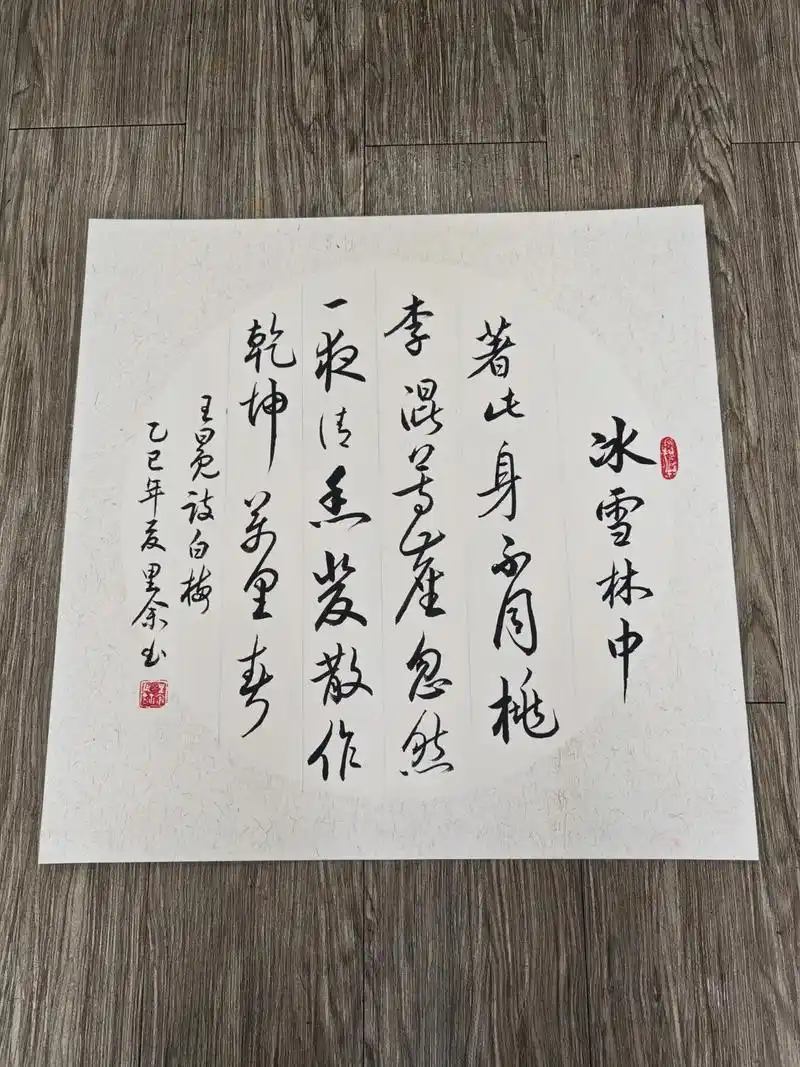 冰雪林中
著此身不同桃
李混芳塵忽然
一夜清香發散作
乾坤萬里春
王冕詩白梅
乙巳年夏里余书